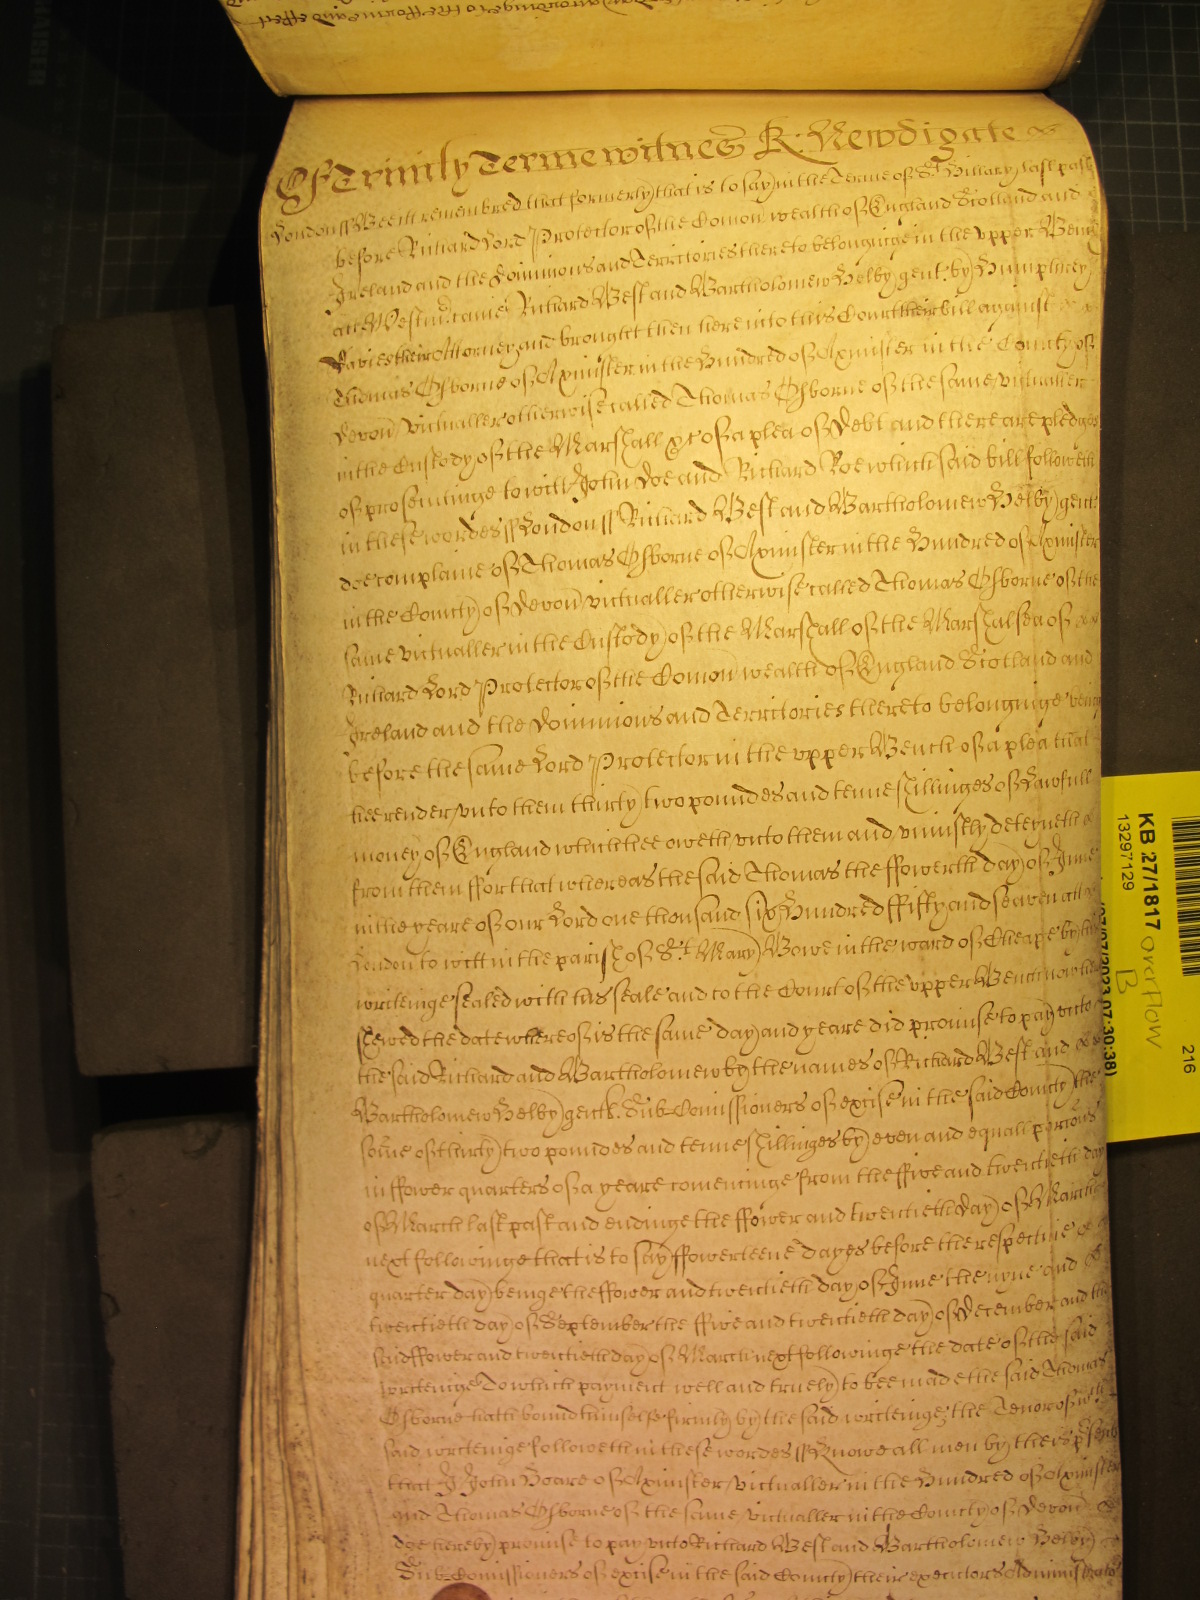 Of Trinity Terme witnes R: Newdigate &
London ss Bee itt remembred that formerly that is to say in the Terme of St Hillary last past
before Richard Lord Protector of the Comon wealth of England Scotland and
Ireland and the Dominions and Territories thereto belonginge in the vpper Bench
att Westm. came Richard West and Bartholomew Helby gent. by Humphrey
Davies their Attorney and brought then here into this Court their bill against
Thomas Osborne of Axminster in the Hundred of Axminster in the County of
Devon victualler otherwise called Thomas Osborne of the same victualler
in the Custody of the Marshall &c of a plea of Debt and there are pledges
of prosecutinge to witt John Doe and Richard Roe which said bill followeth
in these wordes ss London ss Richard West and Bartholomew Helby gent.
doe complaine of Thomas Osborne of Axminster in the Hundred of Axminster
in the County of Devon victualler otherwise called Thomas Osborne of the
same victualler in the Custody of the Marshall of the Marshalsea of
Richard Lord Protector of the Comon wealth of England Scotland and
Ireland and the Dominions and Territories thereto belonginge being
before the same Lord Protector in the vpper Bench of a plea that
hee render vnto them thirty two poundes and tenne shillinges of Lawfull
money of England which hee oweth vnto them and vniustly deteyneth
from them ffor that whereas the said Thomas the ffowerth day of June
in the yeare of our Lord one thousand six Hundred ffifty and seaven att
London to witt in the parish of St Mary Bowe in the ward of Cheape by his
writeinge sealed with his seale and to the Court of the vpper Bench now here
shewed the date whereof is the same day and yeare did promise to pay vnto
the said Richard and Bartholomew by the names of Richard West and
Bartholomew Helby gent. Sub-Comissioners of excise in the said County the
some of thirty two poundes and tenne shillinges by even and equall porcions
in ffower quarters of a yeare comencinge from the ffive and twentieth day
of March last past and endinge the ffower and twentieth day of March
next followinge that is to say ffowerteene dayes before the respective
quarter day beinge the ffower and twentieth day of June the nyne and
twentieth day of September the ffive and twentieth day of December and the
said ffower and twentieth day of March next followinge the date of the said
writeinge To which payment well and truely to bee made the said Thomas
Osborne hath bound himselfe firmly by the said writeinge; the Tenor of which
said writeinge followeth in these wordes ss Knowe all men by theis psents
that I John Hoare of Axminster victualler in the Hundred of Axminster
and Thomas Osborne of the same victualler in the County of Devon
doe hereby promise to pay vnto Richard West and Bartholomew Helby
Sub-Comissioners of excise in the said County their executors Administrators
KB 27/1817 overflow
13297129 B
216
07:30:38)